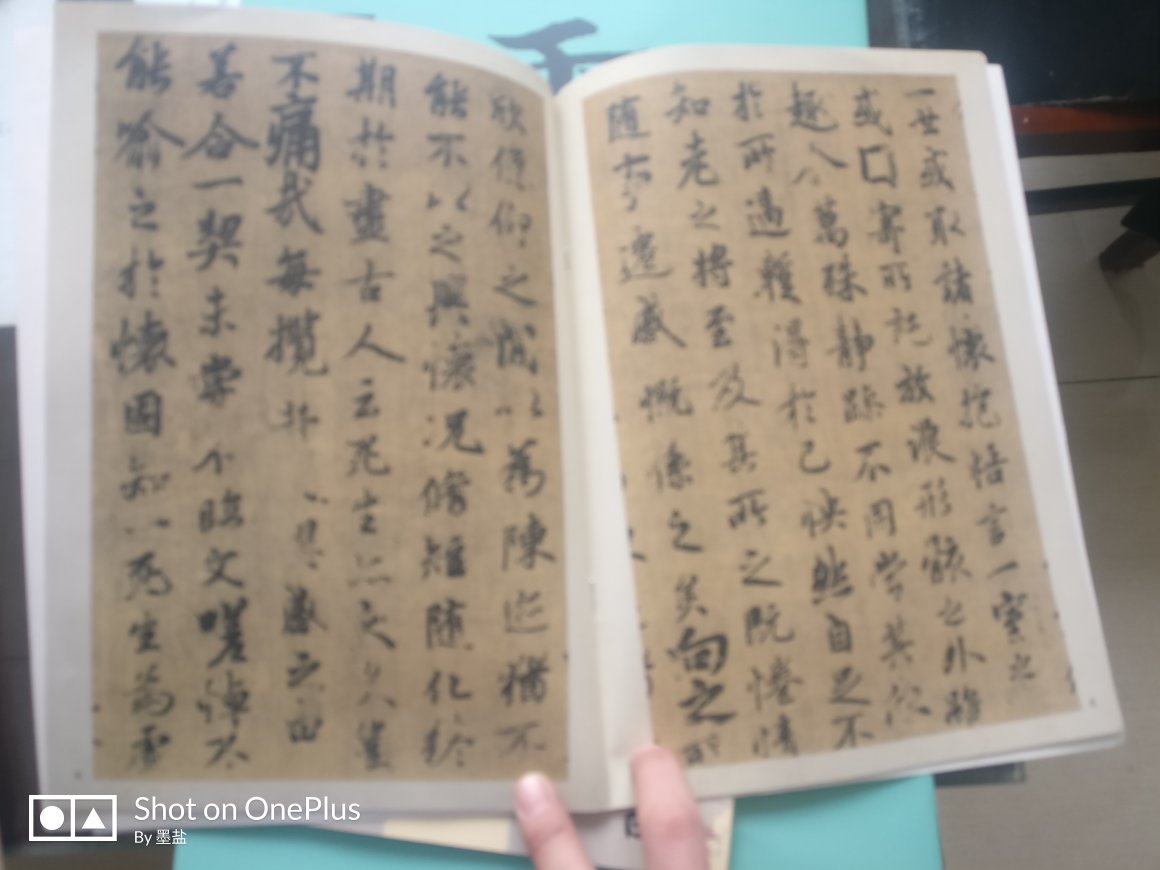 一世或取諸懷抱悟言一室之
或因寄所託放浪形骸之外雖
趣萬殊靜躁不同當其欣
於所遇輒得於己怏然自足不
知老之將至及其所之既惓情
隨事遷感慨係之矣向之所
欣俛仰之間以為陳迹猶不
能不以之興懷況脩短隨化終
期於盡古人云死生亦大矣豈
不痛哉每攬昔人興感之由
善合一契未嘗不臨文嗟悼不
能喻之於懷固知一死生為虛
Shot on OnePlus
By 墨盐